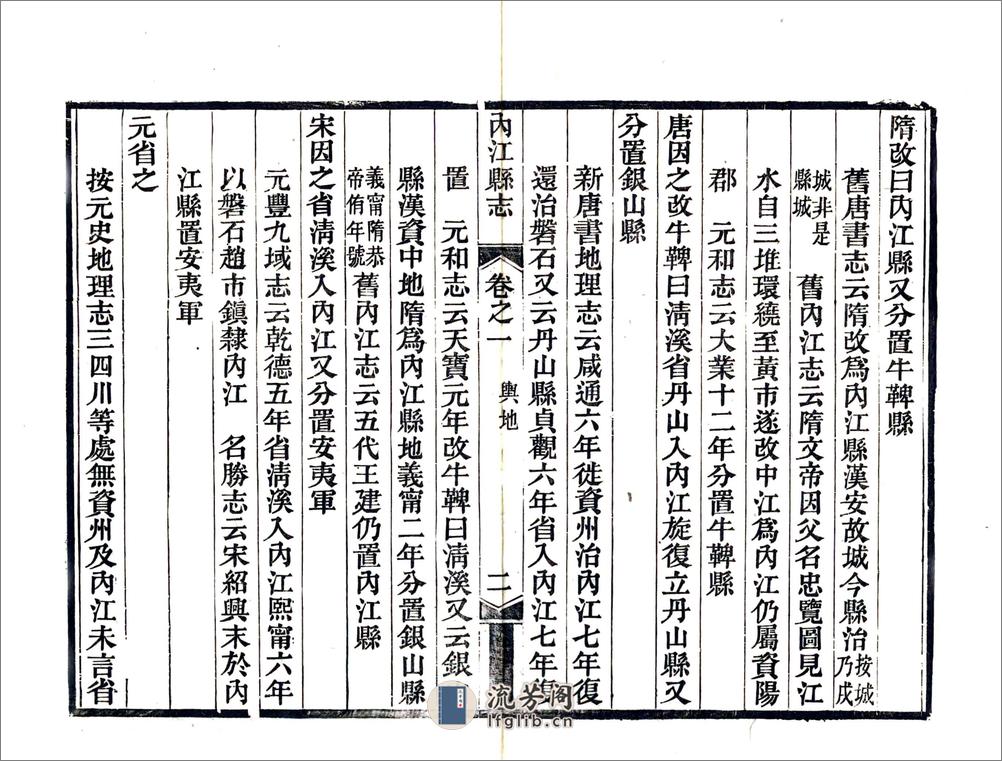 隋改曰內江縣又分置牛鞞縣
舊唐書志云隋改爲內江縣漢安故城今縣治按城乃戍
城非是縣城　舊內江志云隋文帝因父名忠覽圖見江
水自三堆環繞至黃市遂改中江爲內江仍屬資陽
郡　元和志云大業十二年分置牛鞞縣
唐因之改牛鞞曰淸溪省丹山入內江旋復立丹山縣又
分置銀山縣
新唐書地理志云咸通六年徙資州治內江七年復
還治磐石又云丹山縣貞觀六年省入內江七年復
內江縣志　卷之一　輿地　二
置　元和志云天寶元年改牛鞞曰淸溪又云銀山
縣漢資中地隋爲內江縣地義甯二年分置銀山縣
義甯隋恭帝侑年號　舊內江志云五代王建仍置內江縣
宋因之省淸溪入內江又分置安夷軍
元豐九域志云乾德五年省淸溪入內江熙甯六年
以磐石趙市鎭隸內江　名勝志云宋紹興末於內
江縣置安夷軍
元省之
按元史地理志三四川等處無資州及內江未言省
流芳阁
lfglib.cn